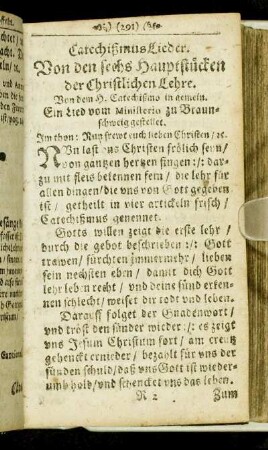 (291)
Catechißmus Lieder.
Von den sechs Hauptstücken
der Christlichen Lehre.
Von dem H. Catechismo in gemein.
Ein Lied vom Ministerio zu Braun-
schweig gestellet.
Im thon: Nun frewt euch lieben Christen / ꝛc.
NUn last uns Christen frölich seyn /
von gantzen hertzen singen :/: dar-
zu mit fleis bekennen fein / die lehr für
allen dingen / die uns von Gott gegeben
ist / getheilt in vier artickeln frisch /
Catechißmus genennet.
Gotts willen zeigt die erste lehr /
durch die gebot beschrieben :/: Gott
trawen / fürchten zimmermehr / lieben
sein nechsten eben / damit dich Gott
lehr leben recht / und deine sünd erken-
nen schlecht / weiset dir todt und leben.
Darauff folget der Gnadenwort /
und tröst den sünder wieder :/: es zeigt
uns Jesum Christum fort / am creutz
gehenckt ernieder / bezahlt für uns der
sünden schuld / daß uns Gott ist wieder-
umb hold / und schencket uns das leben.
N 2 Zum